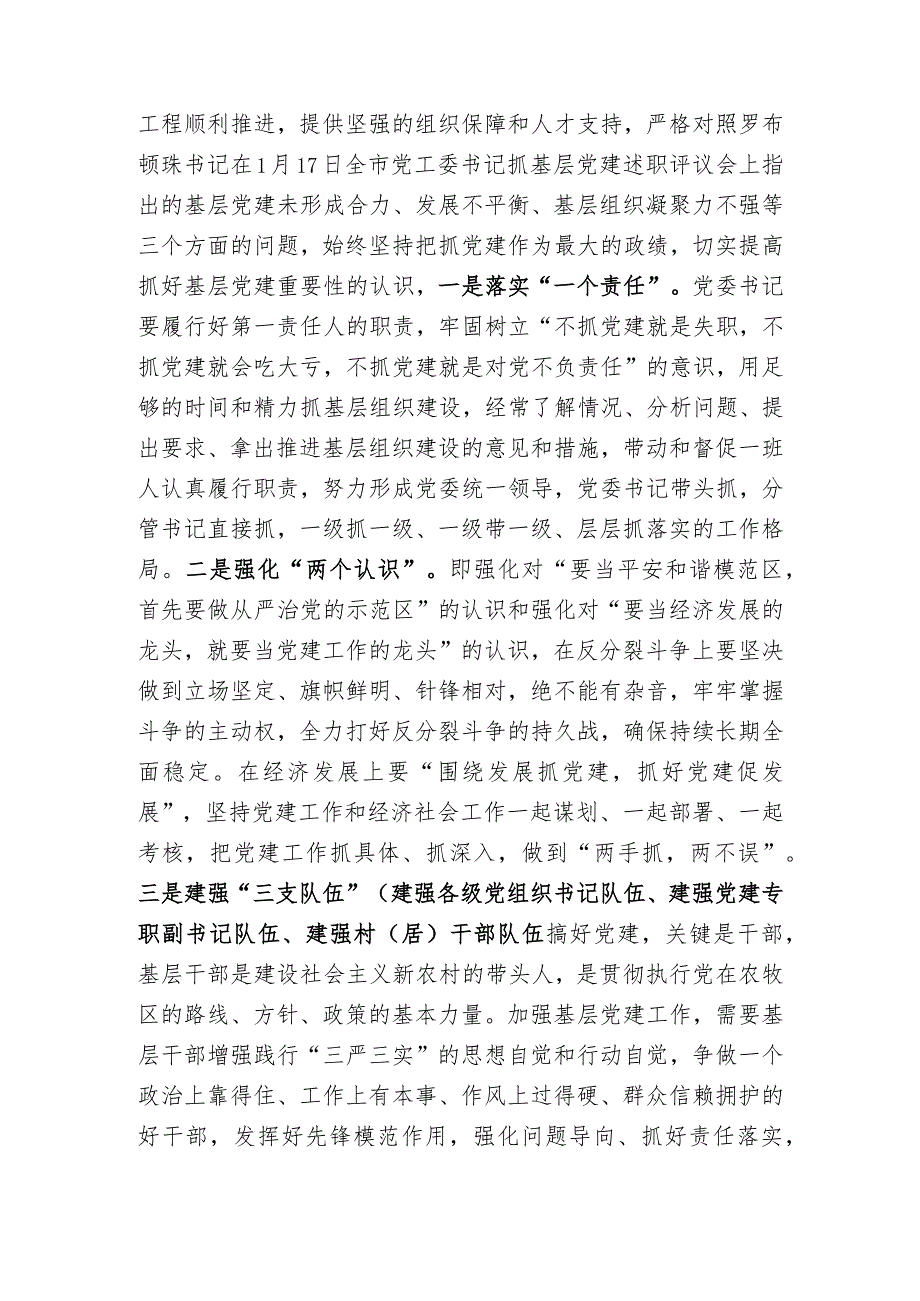 工程顺利推进，提供坚强的组织保障和人才支持，严格对照罗布
顿珠书记在1月17日全市党工委书记抓基层党建述职评议会上指
出的基层党建未形成合力、发展不平衡、基层组织凝聚力不强等
三个方面的问题，始终坚持把抓党建作为最大的政绩，切实提高
抓好基层党建重要性的认识，一是落实“一个责任”。党委书记
要履行好第一责任人的职责，牢固树立“不抓党建就是失职，不
抓党建就会吃大亏，不抓党建就是对党不负责任”的意识，用足
够的时间和精力抓基层组织建设，经常了解情况、分析问题、提
出要求、拿出推进基层组织建设的意见和措施，带动和督促一班
人认真履行职责，努力形成党委统一领导，党委书记带头抓，分
管书记直接抓，一级抓一级、一级带一级、层层抓落实的工作格
局。二是强化“两个认识”。即强化对“要当平安和谐模范区，
首先要做从严治党的示范区”的认识和强化对“要当经济发展的
龙头，就要当党建工作的龙头”的认识，在反分裂斗争上要坚决
做到立场坚定、旗帜鲜明、针锋相对，绝不能有杂音，牢牢掌握
斗争的主动权，全力打好反分裂斗争的持久战，确保持续长期全
面稳定。在经济发展上要“围绕发展抓党建，抓好党建促发
展”，坚持党建工作和经济社会工作一起谋划、一起部署、一起
考核，把党建工作抓具体、抓深入，做到“两手抓，两不误”。
三是建强“三支队伍”（建强各级党组织书记队伍、建强党建专
职副书记队伍、建强村（居）干部队伍搞好党建，关键是干部，
基层干部是建设社会主义新农村的带头人，是贯彻执行党在农牧
区的路线、方针、政策的基本力量。加强基层党建工作，需要基
层干部增强践行“三严三实”的思想自觉和行动自觉，争做一个
政治上靠得住、工作上有本事、作风上过得硬、群众信赖拥护的
好干部，发挥好先锋模范作用，强化问题导向、抓好责任落实，